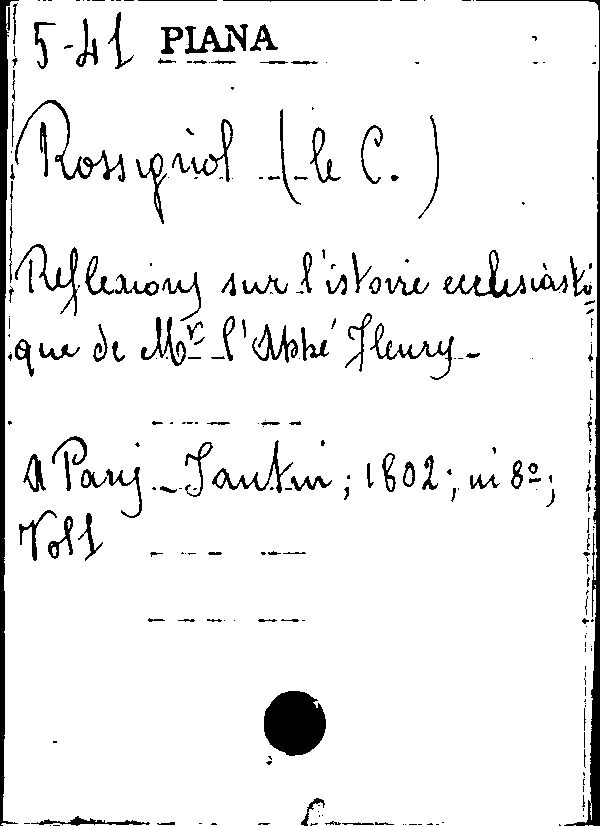 5-41 PIANA
Rossignol (le C.)
Reflexions sur l'istoire ecclesiasti=
que de Mr l'Abbé Fleury-
A Paris - Jantin; 1802; in 8º;
Vol 1